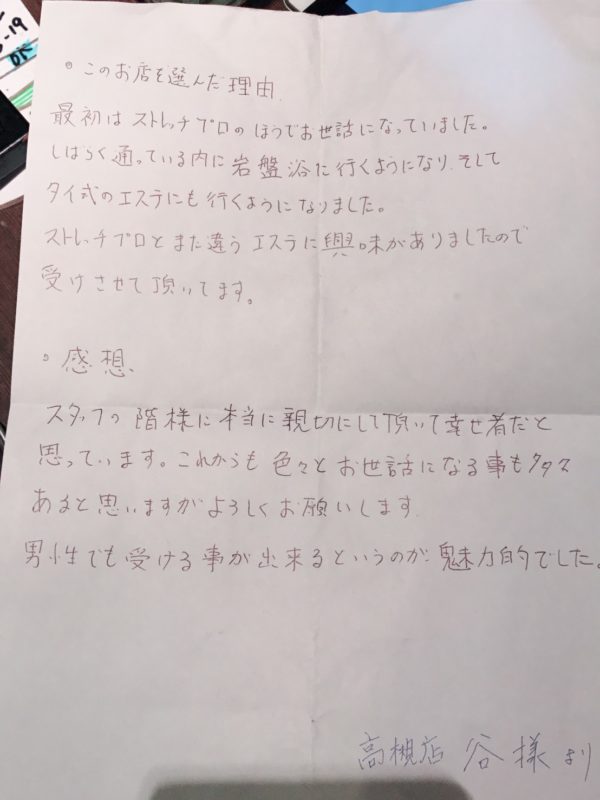 -19
OK
。このお店を選んだ理由.
最初はストレッチプロのほうでお世話になっていました。
しばらく通っている内に岩盤浴に行くようになり、そして
タイ式のエステにも行くようになりました。
ストレッチプロとまた違うエステに興味がありましたので
受けさせて頂いてます。
。感想、
スタッフの階様に本当に親切にして頂いて幸せ者だと
思っています。これからも色々とお世話になる事も多々
あると思いますがよろしくお願いします.
男性でも受ける事が出来るというのが魅力的でした。
高槻店 谷様より